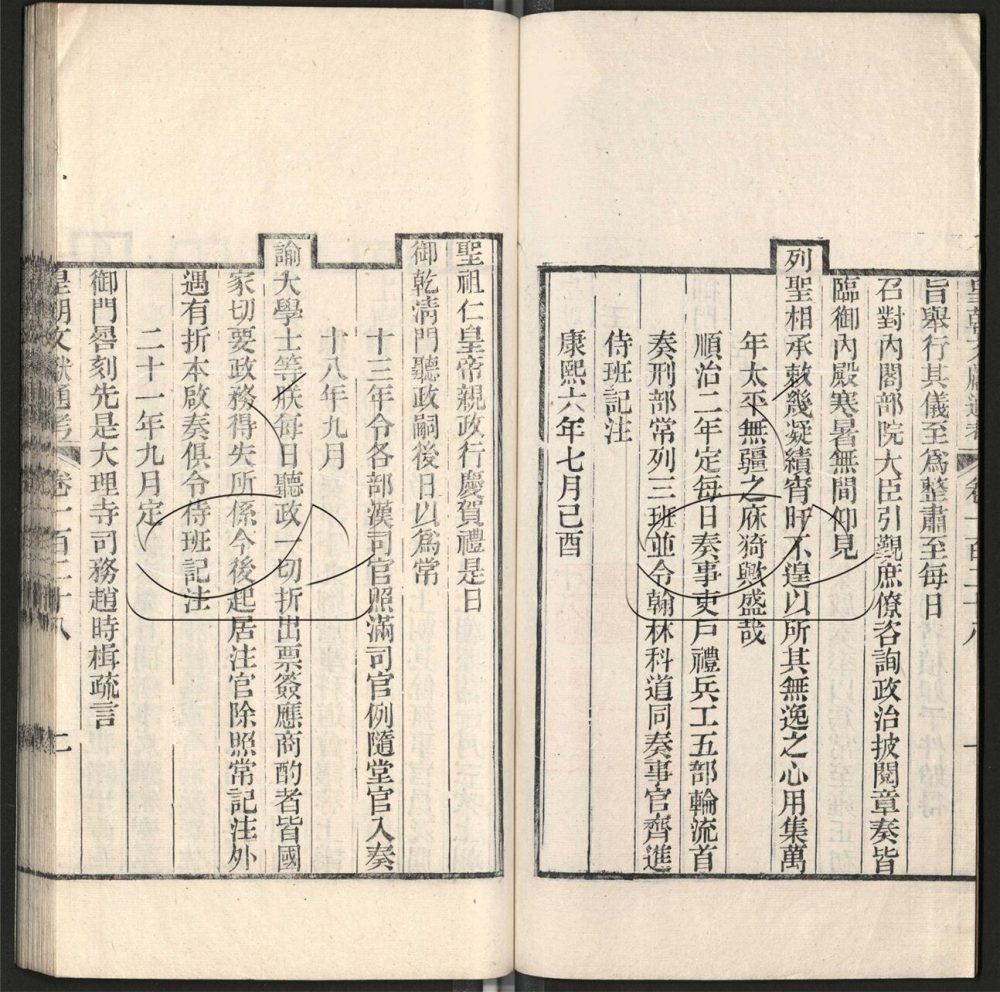 皇朝文獻通考 卷一百二十八 一
旨舉行其儀至爲整肅至每日
召對內閣部院大臣引觀庶僚咨詢政治披閱章奏皆
臨御內殿寒暑無間仰見
列聖相承敕幾凝績宵旰不遑以所其無逸之心用集萬
年太平無疆之庥猗歟盛哉
順治二年定每日奏事吏戶禮兵工五部輪流首
奏刑部常列三班並令翰林科道同奏事官齊進
侍班記注
康熙六年七月己酉
聖祖仁皇帝親政行慶賀禮是日
御乾淸門聽政嗣後日以爲常
十三年令各部漢司官照滿司官例隨堂官入奏
十八年九月
諭大學士等朕每日聽政一切折出票簽應商酌者皆國
家切要政務得失所係今後起居注官除照常記注外
遇有折本啟奏俱令侍班記注
二十一年九月定
御門晷刻先是大理寺司務趙時楫疏言
皇朝文獻通考 卷一百二十八 二